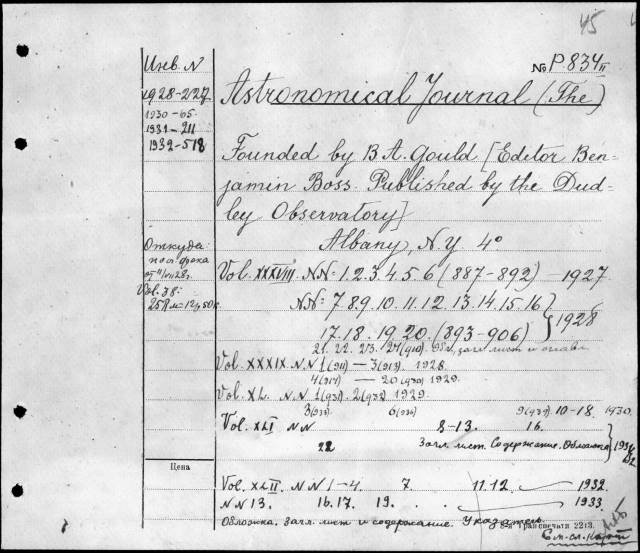 45
Инв. N
№ P.834 II
1928-227
1930-65.
1931-211
1932-518
Astronomical Journal (The)
Founded by B. A. Gould [Editor Ben-
jamin Boss. Published by the Dud-
ley Observatory]
Albany, N.Y. 4°
Откуда:
Vol. 38:
Vol. XXXVIII. NN: 1.2.3.4.5.6 (887-892) - 1927
NN: 7.8.9.10.11.12.13.14.15.16
17.18.19.20. (893-906) } 1928
21. 22. 23. 24 (910). загл. лист и оглавл.
Vol. XXXIX. NN 1 (911) — 3 (913). 1928.
4 (914) — 20 (930) 1929.
Vol. XL. NN 1 (931). 2 (932). 1929.
3 (933) 6 (936) 9 (939) 10-18. 1930.
Vol. XLI NN 8-13. 16.
22 Загл. лист. Содержание. Обложка.
Цена
Vol. XLII. NN 1-4. 7. 11.12. — 1932.
NN 13. 16.17. 19. . . — 1933.
Обложка. Загл. лист и содержание. Указатель.
8-я Транспечати 2213.
См. сл. карт.